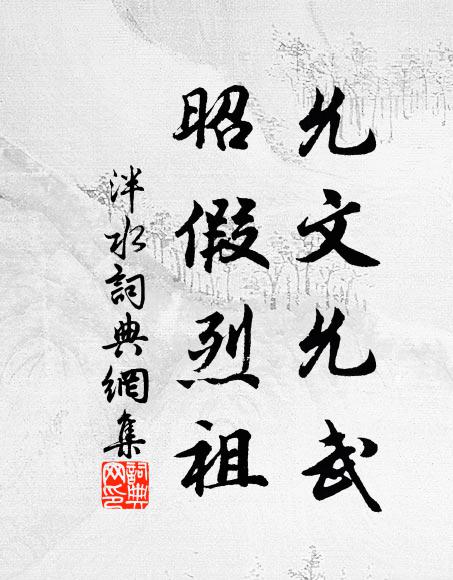 允文允武
昭假烈祖
泮水詞典網集
詞典網印